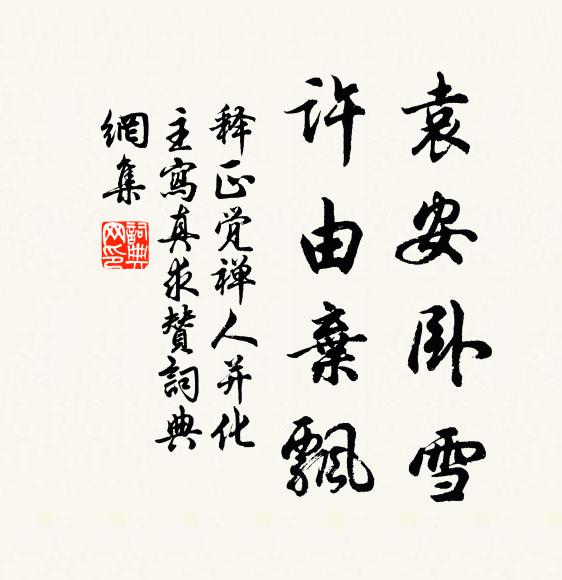 袁安卧雪
许由棄飄
释正觉禅人并化
主寫真求赞詞典
網集
詞典网印